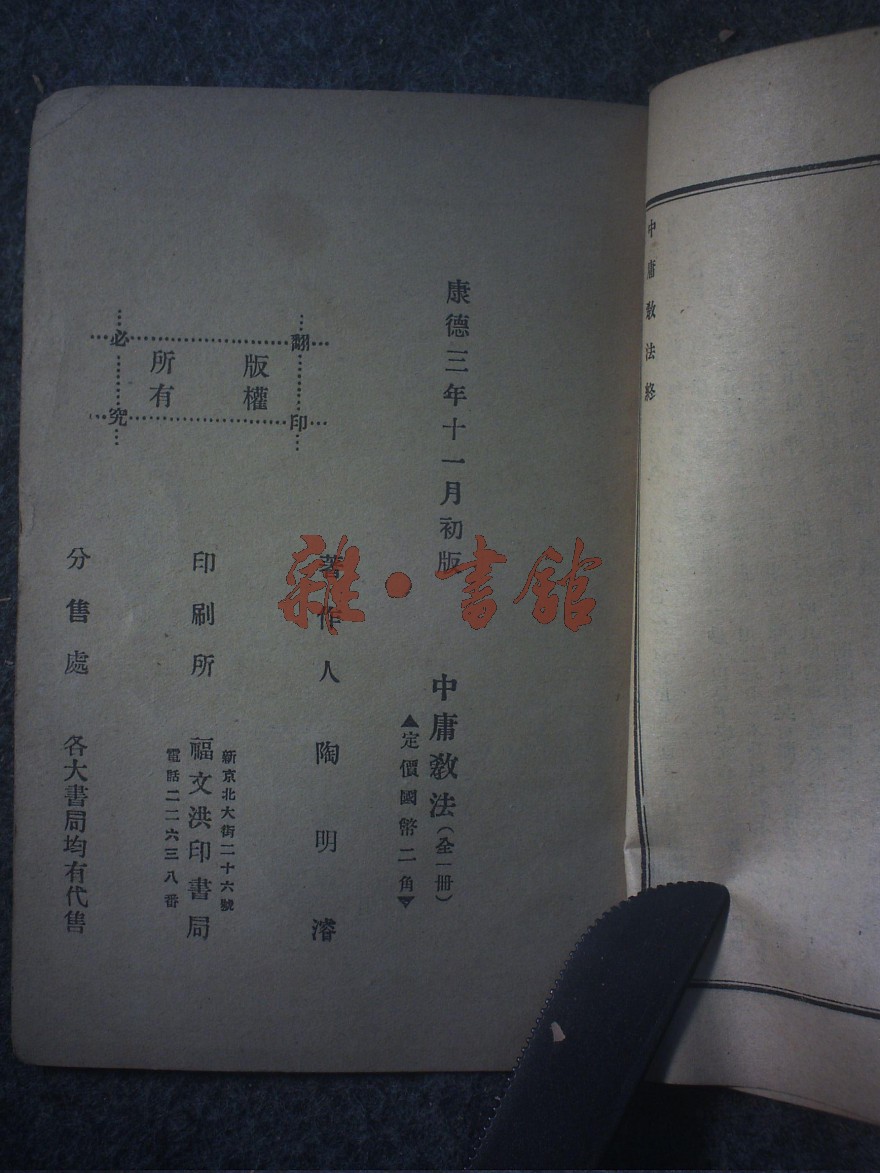 中庸教法終
康德三年十一月初版
中庸教法（全一冊）
▲定價國幣二角▼
版權
所有
翻印
必究
著作人 陶明濬
印刷所 福文洪印書局
新京北大街二十六號
電話二二六三八番
分售處 各大書局均有代售
雜·書館